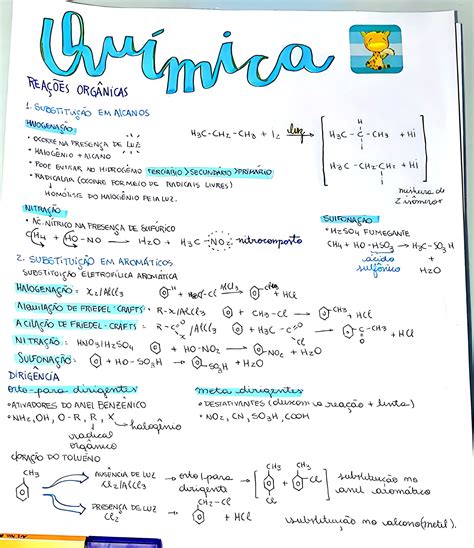 Química
REAÇÕES ORGÂNICAS
1. SUBSTITUIÇÃO EM ALCANOS
HALOGENAÇÃO
• OCORRE NA PRESENÇA DE LUZ
• HALOGÊNIO + ALCANO
• PODE ENTRAR NO HIDROGÊNIO TERCIÁRIO > SECUNDÁRIO > PRIMÁRIO
• RADICALAR (OCORRE POR MEIO DE RADICAIS LIVRES)
HOMÓLISE DO HALOGÊNIO PELA LUZ.
H3C-CH2-CH3 + I2 luz
I
H3C - C - CH3 + HI
H
H3C - CH2-CH2 + HI
I
mistura de
2 isômeros
NITRAÇÃO
• ÁC. NÍTRICO NA PRESENÇA DE SULFÚRICO
CH4 + HO-NO H2O + H3C-NO2: nitrocomposto
SULFONAÇÃO
• H2SO4 FUMEGANTE
CH4 + HO-HSO3 → H3C-SO3H
ácido
sulfônico
+
H2O
2. SUBSTITUIÇÃO EM AROMÁTICOS
SUBSTITUIÇÃO ELETROFÍLICA AROMÁTICA
HALOGENAÇÃO: X2/AlCl3 H + Cl-Cl AlCl3 Cl + HCl
ALQUILAÇÃO DE FRIEDEL-CRAFTS: R-X/AlCl3 + CH3-Cl → CH3 + HCl
ACILAÇÃO DE FRIEDEL-CRAFTS: R-C O X /AlCl3 + H3C-C O Cl → O C-CH3 + HCl
NITRAÇÃO: HNO3/H2SO4 + HO-NO2 → NO2 + H2O
SULFONAÇÃO: + HO-SO3H → SO3H + H2O
DIRIGÊNCIA
orto-para dirigentes
• ATIVADORES DO ANEL BENZÊNICO
• NH2, OH, O-R, R, X → halogênio
radical
orgânico
meta dirigentes
• DESATIVANTES (deixam a reação + lenta)
• NO2, CN, SO3H, COOH
CLORAÇÃO DO TOLUENO
CH3
AUSÊNCIA DE LUZ
Cl2/AlCl3
orto/para
dirigente
CH3 Cl + CH3 Cl
substituição no
anel aromático
PRESENÇA DE LUZ
Cl2
CH2-Cl + HCl
substituição no alcano (metil).